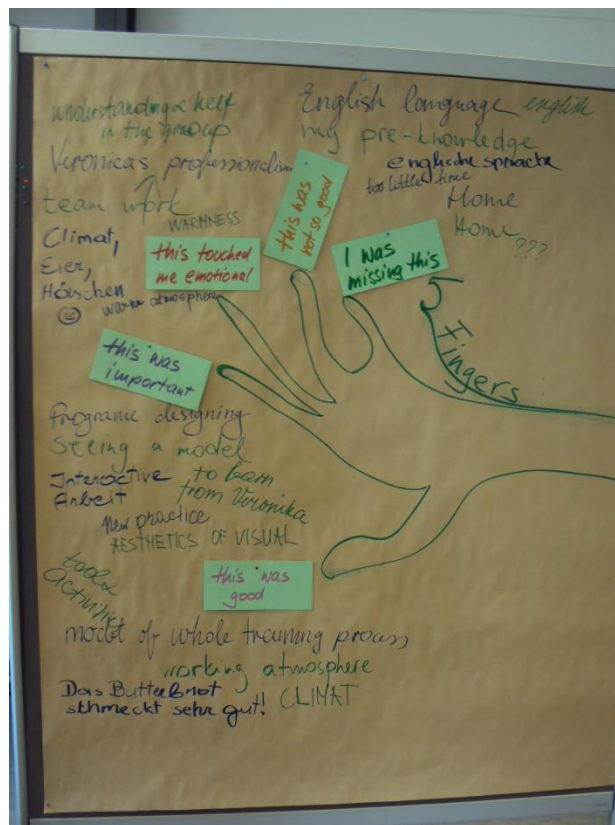 understanding & help
in the group
Veronicas professionalism
team work
WARMNESS
Climat,
Eier,
Höschen
warm atmosphere
this touched
me emotional
this was
not so good
English language english
my pre-knowledge
englische sprache
too little time
Home
Home
???
I was
missing this
5 Fingers
this was
important
Programe designing
Seeing a model
Interactive
Arbeit
to learn
from Veronika
New practice
AESTHETICS OF VISUAL
tools
activities
this was
good
model of whole training process
working atmosphere
Das Butterbrot
schmeckt sehr gut!
CLIMAT